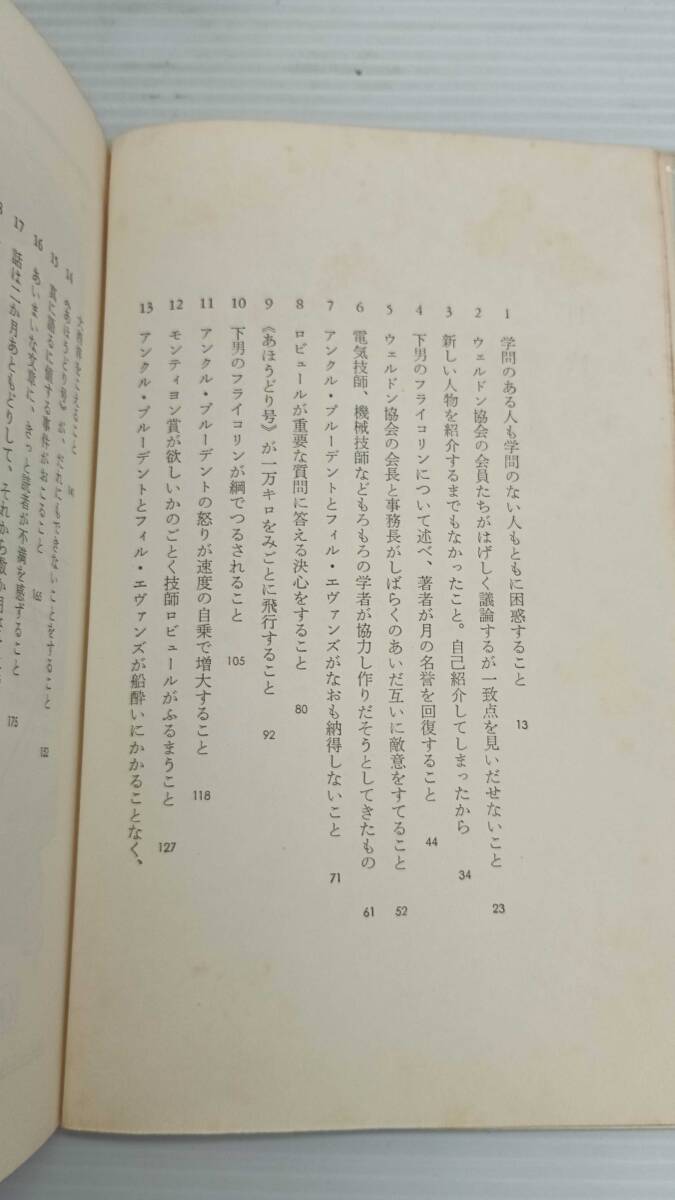 1 学問のある人も学問のない人もともに困惑すること 13
2 ウェルドン協会の会員たちがはげしく議論するが一致点を見いだせないこと 23
3 新しい人物を紹介するまでもなかったこと。自己紹介してしまったから 34
4 下男のフライコリンについて述べ、著者が月の名誉を回復すること 44
5 ウェルドン協会の会長と事務長がしばらくのあいだ互いに敵意をすてること 52
6 電気技師、機械技師などもろもろの学者が協力し作りだそうとしてきたもの 61
7 アンクル・プルーデントとフィル・エヴァンズがなおも納得しないこと 71
8 ロビュールが重要な質問に答える決心をすること 80
9 《あほうどり号》が一万キロをみごとに飛行すること 92
10 下男のフライコリンが綱でつるされること 105
11 アンクル・プルーデントの怒りが速度の自乗で増大すること 118
12 モンティヨン賞が欲しいかのごとく技師ロビュールがふるまうこと 127
13 アンクル・プルーデントとフィル・エヴァンズが船酔いにかかることなく、
をこえること
14 《あほうどり号》が、だれにもできないことをすること 152
15 真に語るに値する事件がおこること 165
16 あいまいな文章に、きっと読者が不満を感ずること 175
17 話は二か月あともどりして、それから